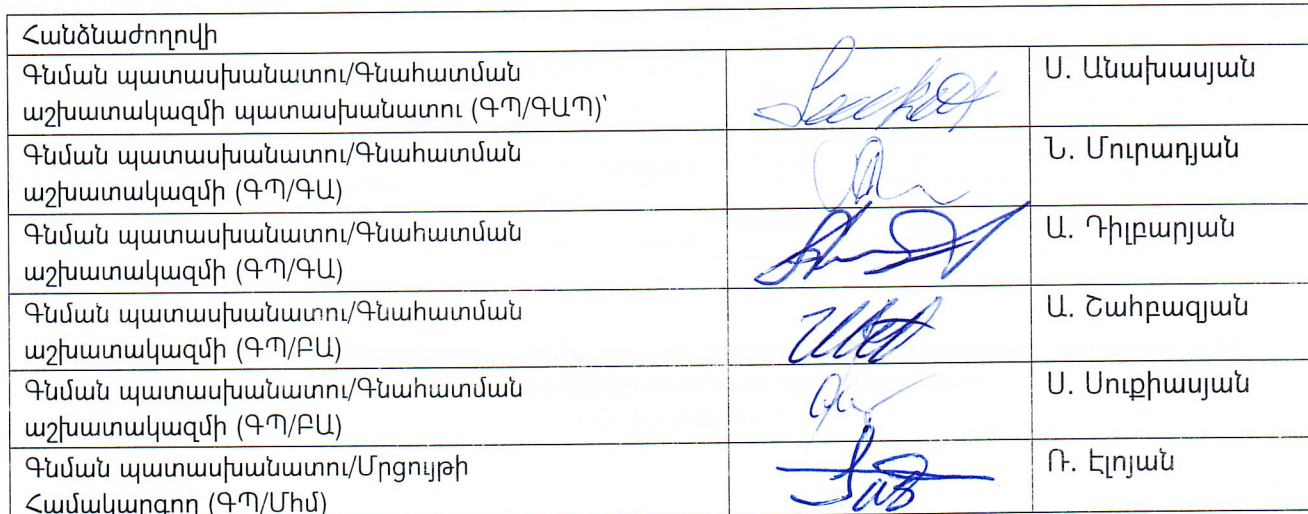 Հանձնաժողովի
Գնման պատասխանատու/Գնահատման
աշխատակազմի պատասխանատու (ԳՊ/ԳԱՊ)՝
Ս. Անախասյան
Գնման պատասխանատու/Գնահատման
աշխատակազմի (ԳՊ/ԳԱ)
Ն. Մուրադյան
Գնման պատասխանատու/Գնահատման
աշխատակազմի (ԳՊ/ԳԱ)
Ա. Դիլբարյան
Գնման պատասխանատու/Գնահատման
աշխատակազմի (ԳՊ/ԲԱ)
Ա. Շահբազյան
Գնման պատասխանատու/Գնահատման
աշխատակազմի (ԳՊ/ԲԱ)
Ս. Սուքիասյան
Գնման պատասխանատու/Մրցույթի
Համակարգող (ԳՊ/Միմ)
Ռ. Էլոյան